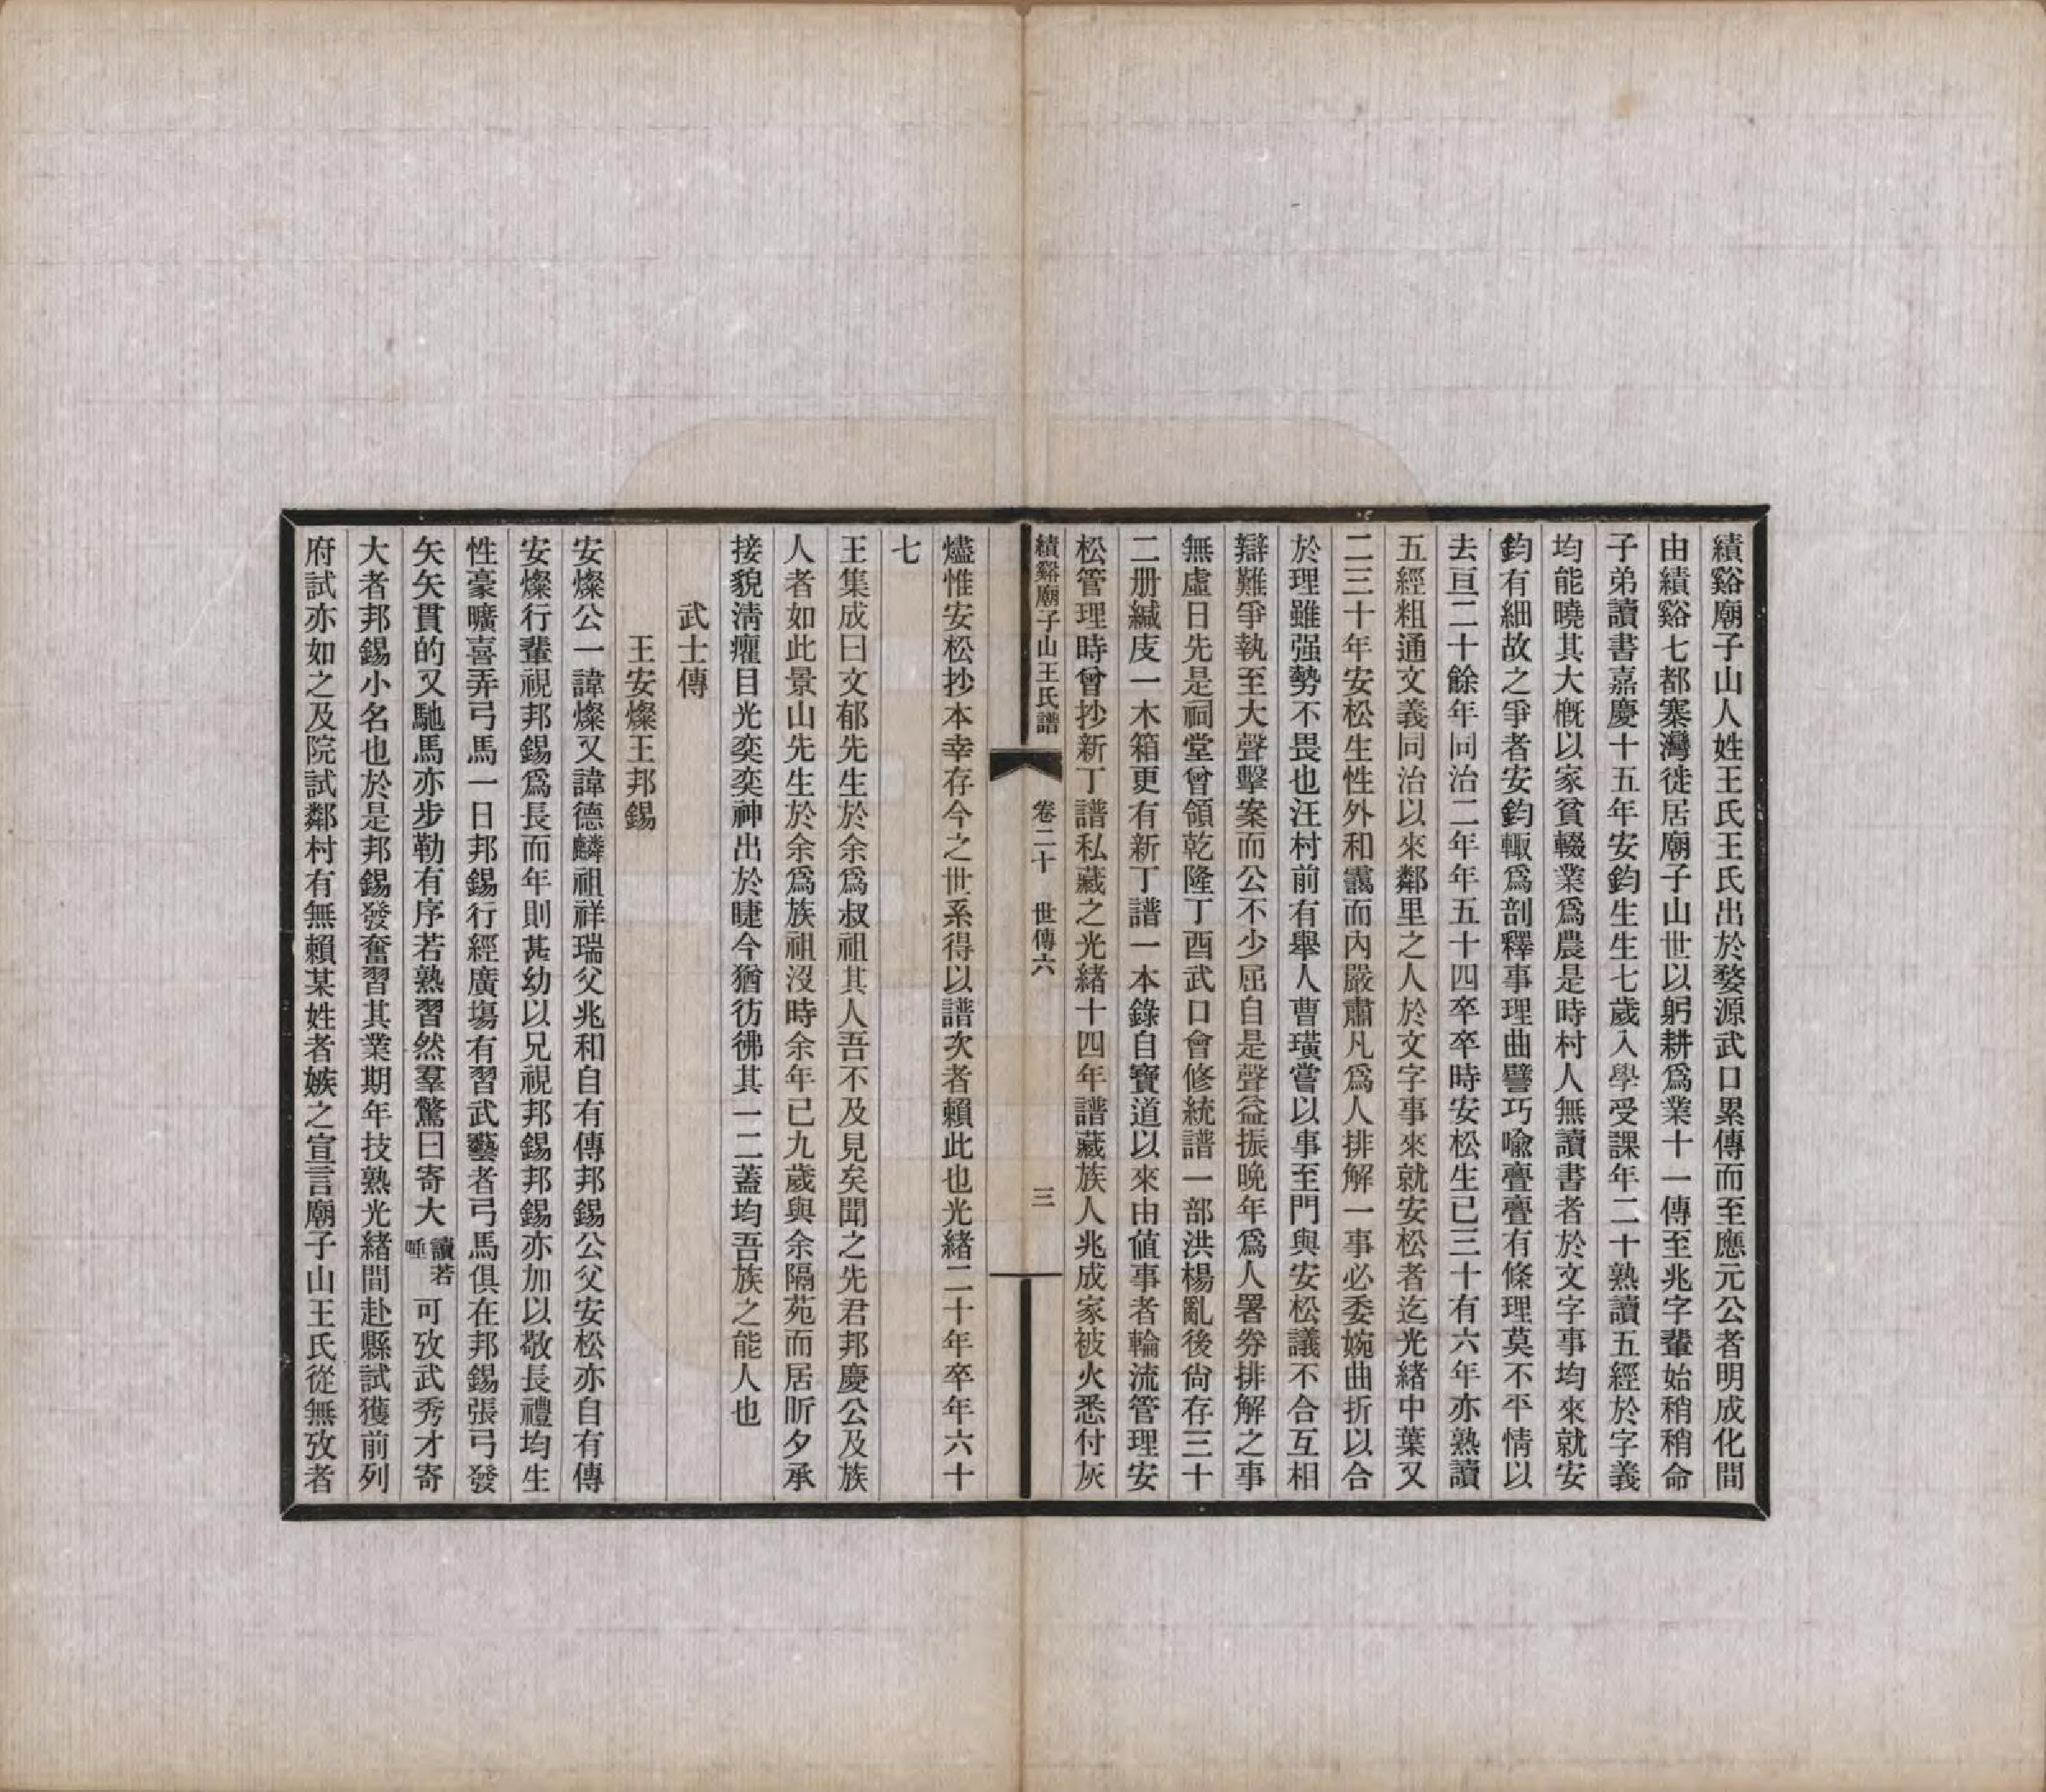 績谿廟子山人姓王氏王氏出於婺源武口累傳而至應元公者明成化間
由績谿七都寨灣徙居廟子山世以躬耕爲業十一傳至兆字輩始稍稍命
子弟讀書嘉慶十五年安鈞生生七歲入學受課年二十熟讀五經於字義
均能曉其大槪以家貧輟業爲農是時村人無讀書者於文字事均來就安
鈞有細故之爭者安鈞輙爲剖釋事理曲譬巧喩亹亹有條理莫不平情以
去亘二十餘年同治二年年五十四卒卒時安松生已三十有六年亦熟讀
五經粗通文義同治以來鄰里之人於文字事來就安松者迄光緒中葉又
二三十年安松生性外和靄而內嚴肅凡爲人排解一事必委婉曲折以合
於理雖强勢不畏也汪村前有舉人曹璜嘗以事至門與安松議不合互相
辯難爭執至大聲擊案而公不少屈自是聲益振晚年爲人署券排解之事
無虛日先是祠堂曾領乾隆丁酉武口會修統譜一部洪楊亂後尙存三十
二册緘庋一木箱更有新丁譜一本錄自寶道以來由値事者輪流管理安
松管理時曾抄新丁譜私藏之光緒十四年譜藏族人兆成家被火悉付灰
績谿廟子山王氏譜 卷二十 世傳六 三
燼惟安松抄本幸存今之世系得以譜次者賴此也光緒二十年卒年六十
七
王集成曰文郁先生於余爲叔祖其人吾不及見矣聞之先君邦慶公及族
人者如此景山先生於余爲族祖沒時余年已九歲與余隔苑而居昕夕承
接貌淸癯目光奕奕神出於睫今猶彷彿其一二蓋均吾族之能人也
武士傳
王安燦王邦錫
安燦公一諱燦又諱德麟祖祥瑞父兆和自有傳邦錫公父安松亦自有傳
安燦行輩視邦錫爲長而年則甚幼以兄視邦錫邦錫亦加以敬長禮均生
性豪曠喜弄弓馬一日邦錫行經廣塲有習武藝者弓馬俱在邦錫張弓發
矢矢貫的又馳馬亦步勒有序若熟習然羣驚曰寄大讀若唾可攷武秀才寄
大者邦錫小名也於是邦錫發奮習其業期年技熟光緒間赴縣試獲前列
府試亦如之及院試鄰村有無賴某姓者嫉之宣言廟子山王氏從無攷者